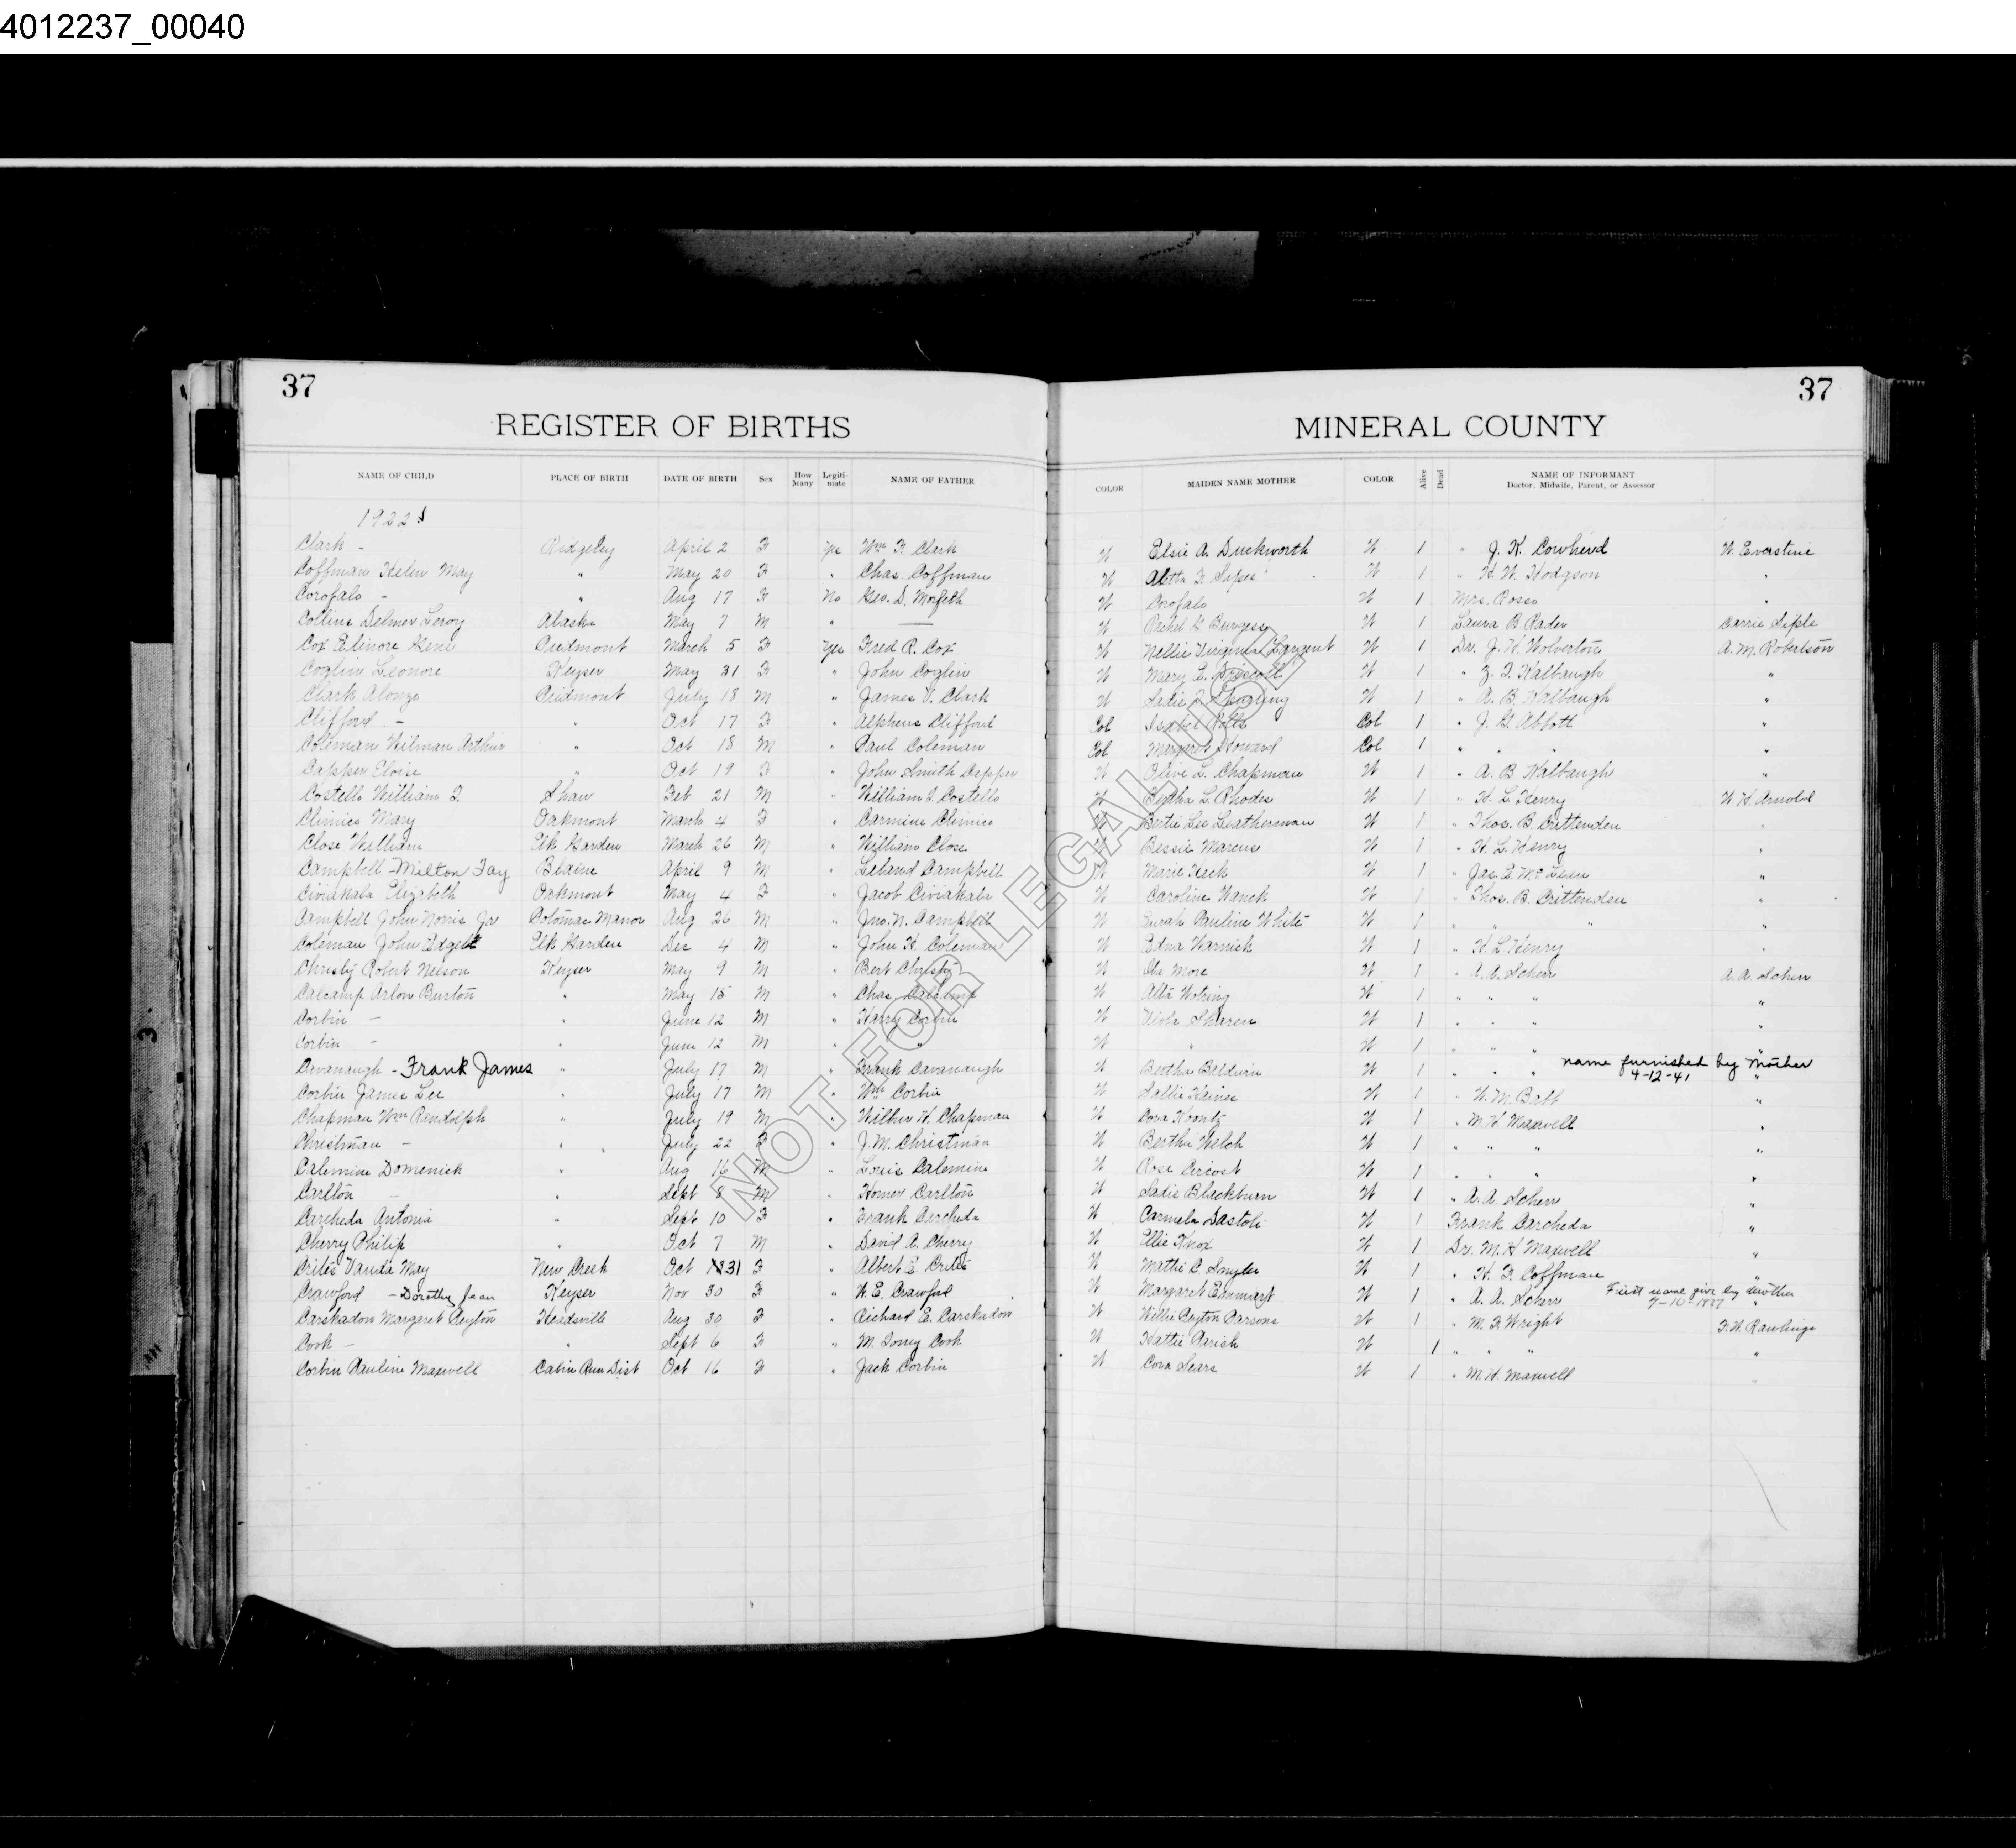 4012237_00040
37 37
REGISTER OF BIRTHS MINERAL COUNTY
NAME OF CHILD PLACE OF BIRTH DATE OF BIRTH Sex How Many Legitimate NAME OF FATHER COLOR MAIDEN NAME MOTHER COLOR Alive Dead NAME OF INFORMANT Doctor, Midwife, Parent, or Assessor
1922
Clark - Ridgeley April 2 F Yes Wm F Clark W Elsie A. Duckworth W 1 " J. K. Cowherd W Everstine
Coffman Helen May " May 20 F " Chas. Coffman W Sipes W 1 " H. W. Hodgson "
Corofalo - " Aug 17 F No Geo. D. W Corofalo W 1 Mrs. Rosso "
Collins Delmer Leroy Alaska May 7 M " — W Burgess W 1 Laura B Rader Carrie Siple
Cox Elinore Piedmont March 5 F Yes Fred R. Cox W Nellie Virginia Largent W 1 Dr. J. H. Wolverton A. M. Robertson
Coglin Leonore Keyser May 31 F " John Coglin W Mary E. Driscoll W 1 " Z. T. Kalbaugh "
Clark Alonzo Piedmont July 18 M " James V. Clark W W 1 " A. B. Kalbaugh "
Clifford - " Oct 17 F " Alpheus Clifford Col Isabel Potts Col 1 " J. G. Abbott "
Coleman Wilman Arthur " Oct 18 M " Paul Coleman Col Margaret Howard Col 1 " " " "
Capper Eloise " Oct 19 F " John Smith Capper W Olive L. Chapman W 1 " A. B Kalbaugh "
Costello William I. Shaw Feb 21 M " William I. Costello W Bertha L. Rhodes W 1 " H. L. Henry W. H. Arnold
Climico Mary Oakmont March 4 F " Carmine Climico W Bertie Lee Leatherman W 1 " Thos. B. Crittenden "
Close William Elk Garden March 26 M " William Close W Bessie Marcus W 1 " H. L. Henry "
Campbell - Milton Fay Blaine April 9 M " Leland Campbell W Marie Heck W 1 " "
Civiakala Elizabeth Oakmont May 4 F " Jacob Civiakala W Caroline Wanek W 1 " Thos. B. Crittenden "
Campbell John Norris Jr Potomac Manor Aug 26 M " Jno. N. Campbell W Sarah Pauline White W 1 " " " "
Coleman John Edgell Elk Garden Dec 4 M " John H. Coleman W Edna Warnick W 1 " H. L Henry "
Christy Robert Nelson Keyser May 9 M " Bert Christy W More W 1 " A. A. Scherr A. A. Scherr
Calcamp Arlon Burton " May 15 M " Chas. Calcamp W Alta Wotring W 1 " " " "
Corbin - " June 12 M " Harry Corbin W Viola Sharen W 1 " " " "
Corbin - " June 12 M " " W " W 1 " " " "
Cavanaugh - Frank James " July 17 M " Frank Cavanaugh W Bertha Baldwin W 1 " " " name furnished by Mother 4-12-41 "
Corbin James Lee " July 17 M " Wm Corbin W Sallie Haines W 1 " W. M. Babb "
Chapman Wm Randolph " July 19 M " Wilbur H. Chapman W Cora Koontz W 1 " M. H Maxwell "
Christman - " July 22 F " J. M. Christman W Bertha Welch W 1 " " " "
Calemine Domenick " Aug 16 M " Louis Calemine W Rosa Circost W 1 " " " "
Carlton - " Sept 8 M " Homer Carlton W Sadie Blackburn W 1 " A. A. Scherr "
Carcheda Antonia " Sept 10 F " Frank Carcheda W Carmela Sastoli W 1 Frank Carcheda "
Cherry Philip " Oct 7 M " David A. Cherry W Ellie Knox W 1 Dr. M. H Maxwell "
Crites Vanda May New Creek Oct 31 F " Albert E. Crites W Mattie C. Snyder W 1 " H. F. Coffman "
Crawford - Dorothy Jean Keyser Nov 30 F " W. E. Crawford W Margaret Emmart W 1 " A. A. Scherr First name give by mother 7-10-1937 "
Carskadon Margaret Peyton Headsville Aug 30 F " Richard E. Carskadon W Willie Peyton Parsons W 1 " M. F. Wright F. W. Rawlings
Cook - " Sept 6 F " M. Toney Cook W Hattie Parish W 1 " " " "
Corbin Pauline Maxwell Cabin Run Dist Oct 16 F " Jack Corbin W Cora Sears W 1 " M. H. Maxwell "
NOT FOR LEGAL USE